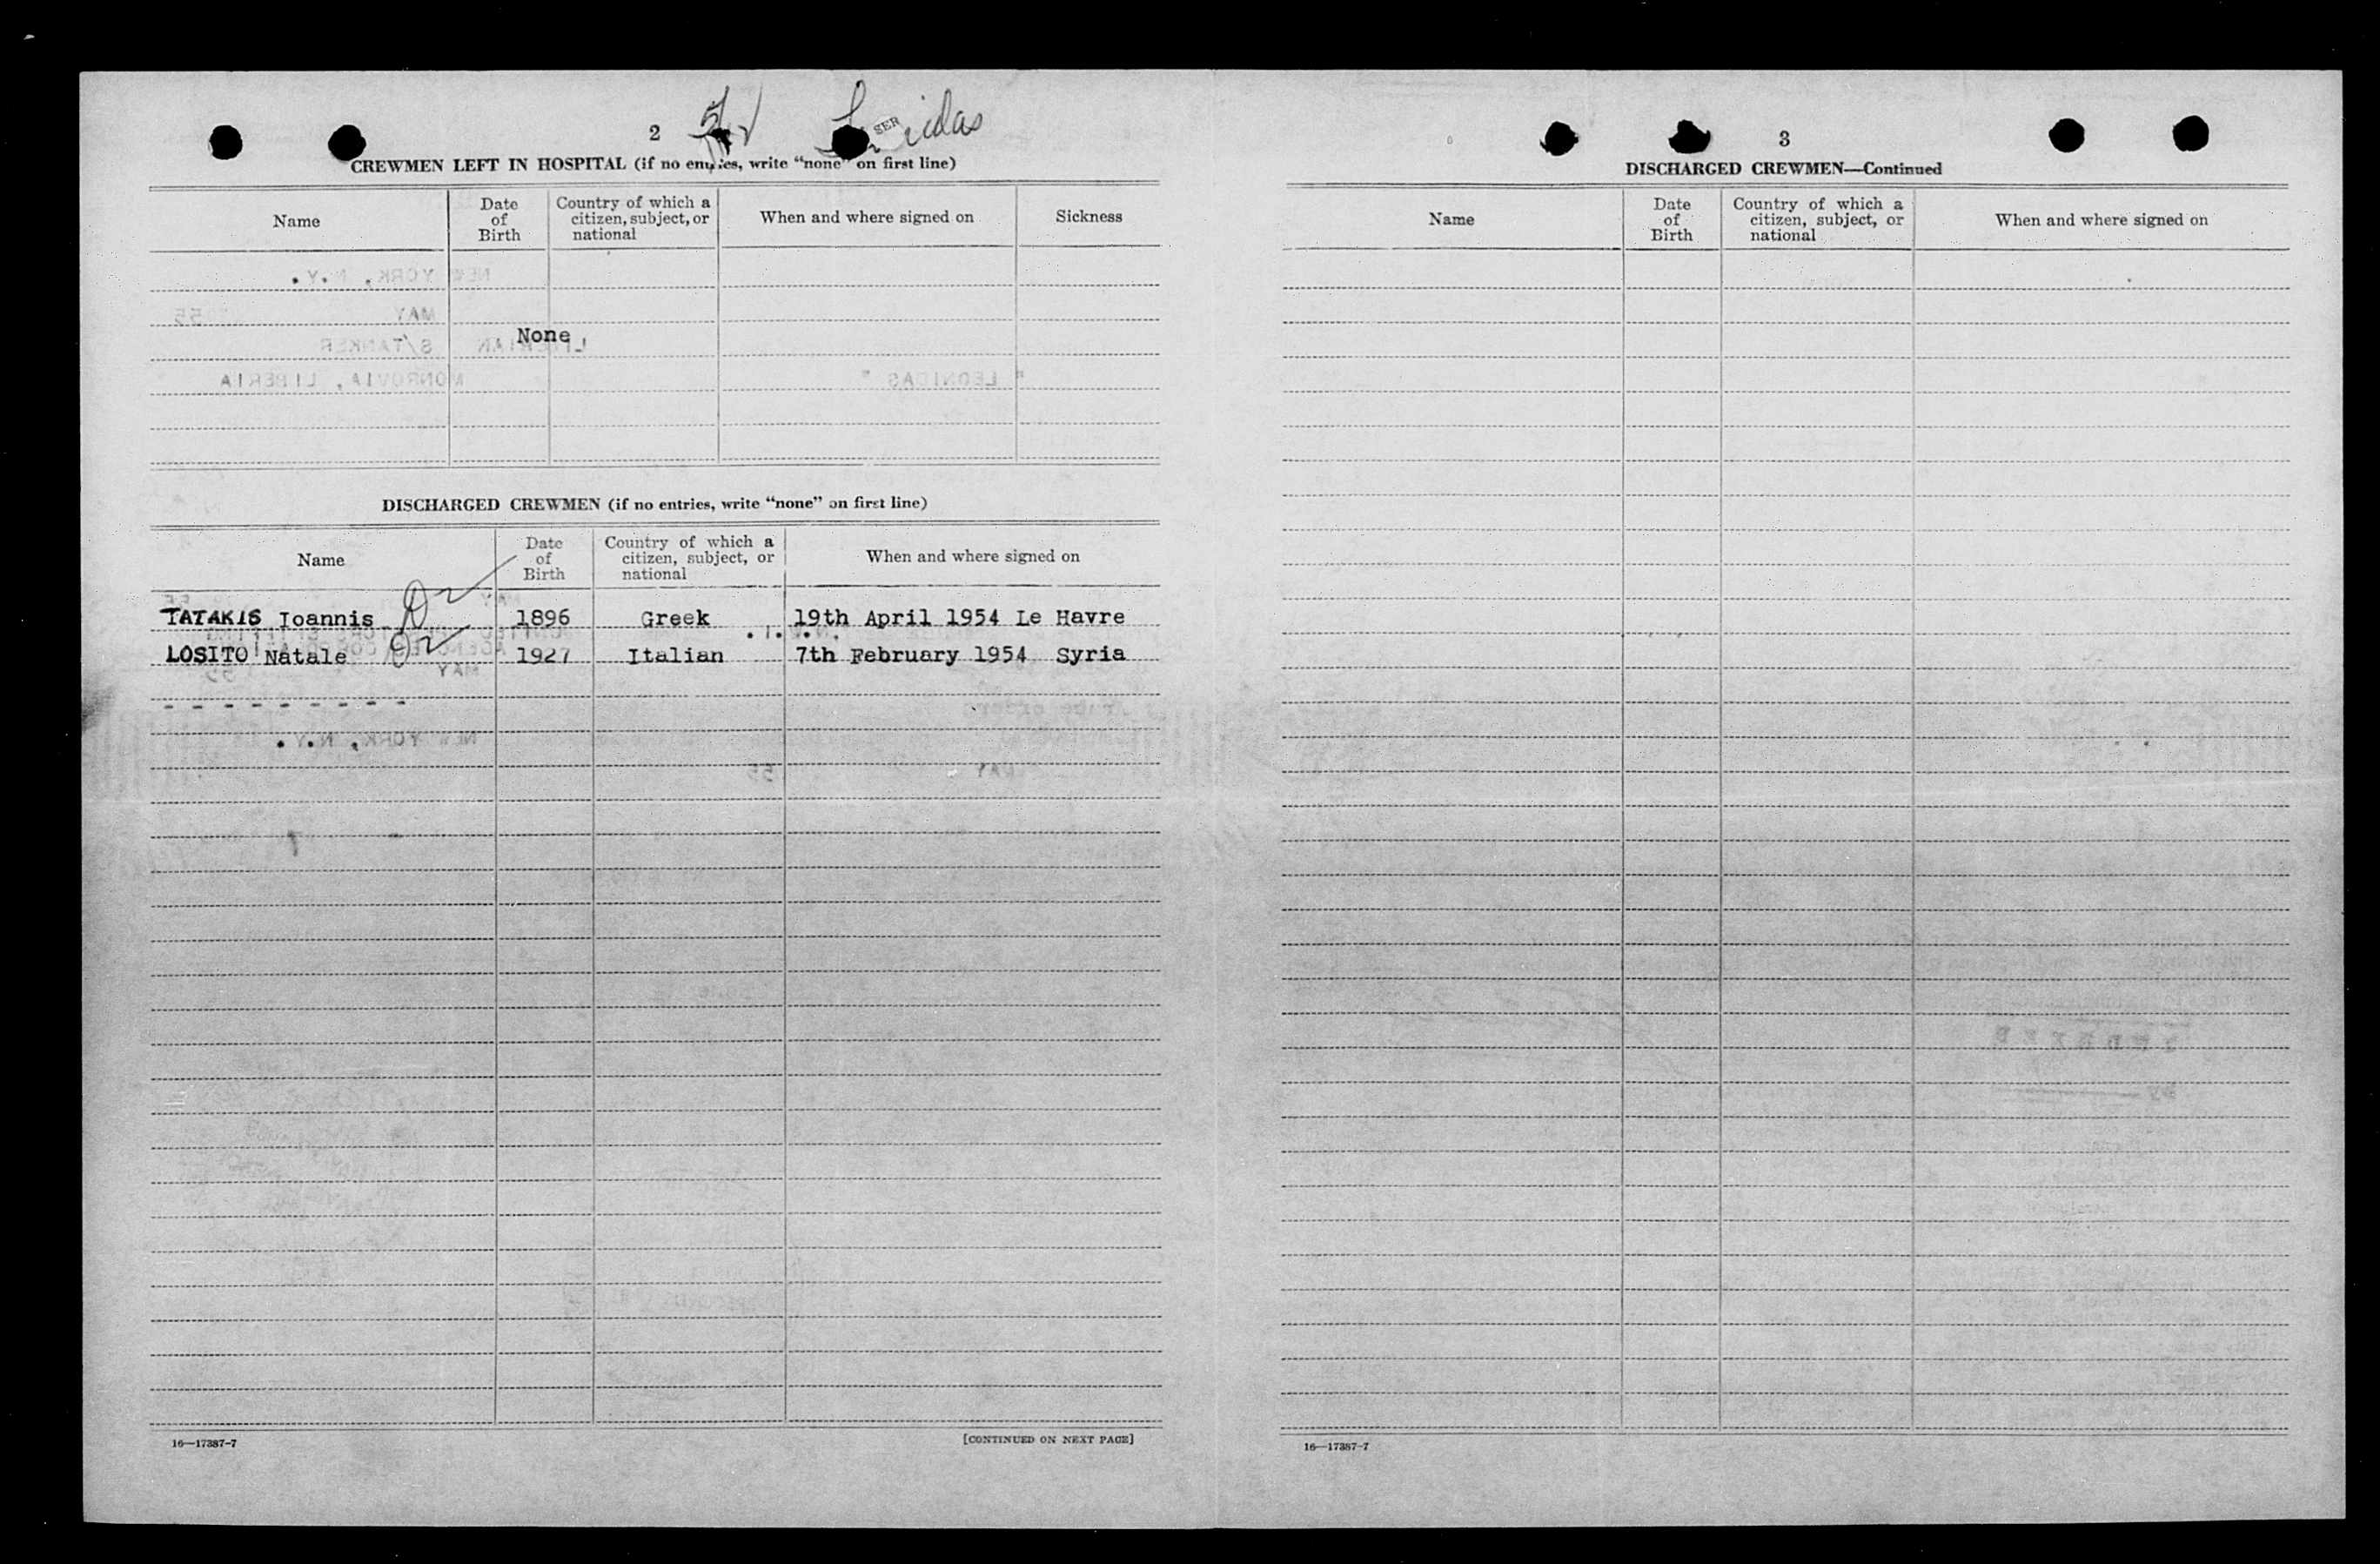 2
SER
CREWMEN LEFT IN HOSPITAL (if no entries, write "none" on first line)
Name Date of Birth Country of which a citizen, subject, or national When and where signed on Sickness
NEW YORK, N.Y.
MAY 55
None
LIBERIAN S/TANKER
" LEONIDAS " MONROVIA, LIBERIA
DISCHARGED CREWMEN (if no entries, write "none" on first line)
Name Date of Birth Country of which a citizen, subject, or national When and where signed on
TATAKIS Ioannis 1896 Greek 19th April 1954 Le Havre
LOSITO Natale 1927 Italian 7th February 1954 Syria
MAY 55
- - - - - - - - -
NEW YORK, N.Y.
MAY 55
16—17387-7 [CONTINUED ON NEXT PAGE]
3
DISCHARGED CREWMEN—Continued
Name Date of Birth Country of which a citizen, subject, or national When and where signed on
16—17387-7